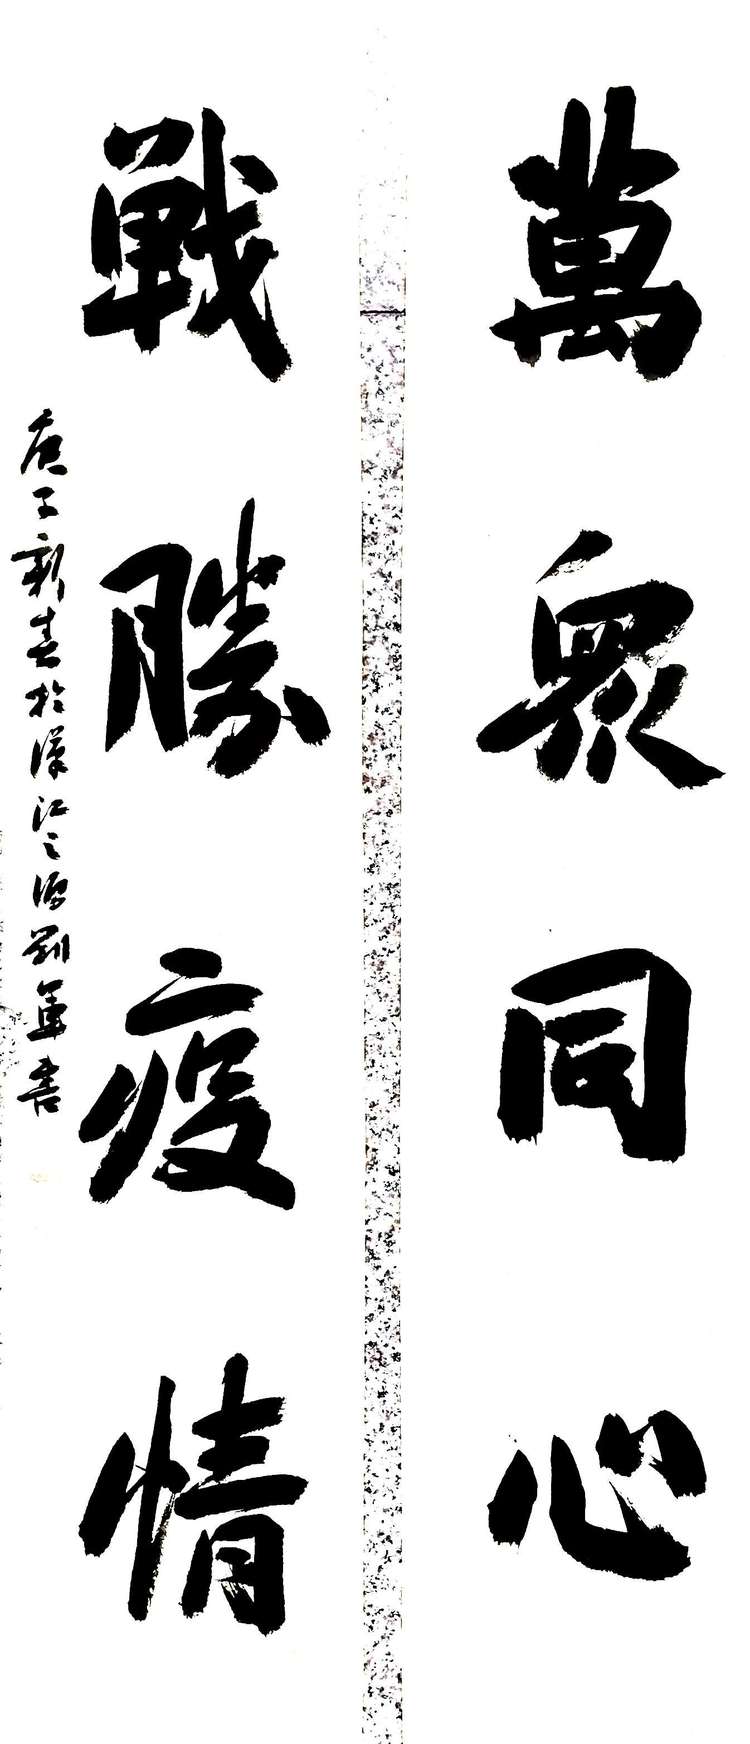 萬衆同心
戰勝疫情
庚子新春於漢江之源劉軍書